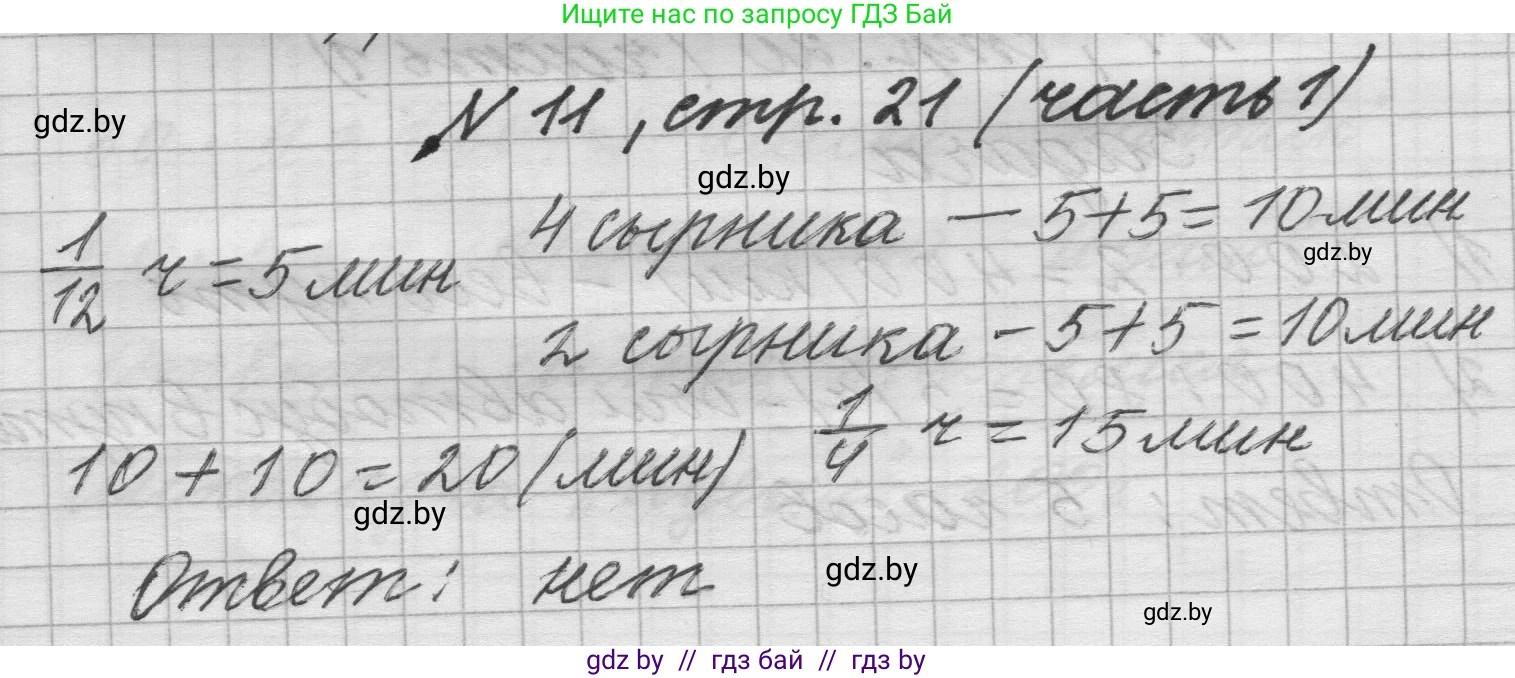 Ищите нас по запросу ГДЗ Бай
N 11, стр. 21 (часть 1)
gdz.by
gdz.by
4 сырника — 5+5=10 мин
gdz.by
1/12 ч = 5 мин
2 сырника - 5+5 = 10 мин
10 + 10 = 20 (мин) 1/4 ч = 15 мин
gdz.by
Ответ: нет
gdz.by
gdz.by
gdz by // гдз бай // гдз by